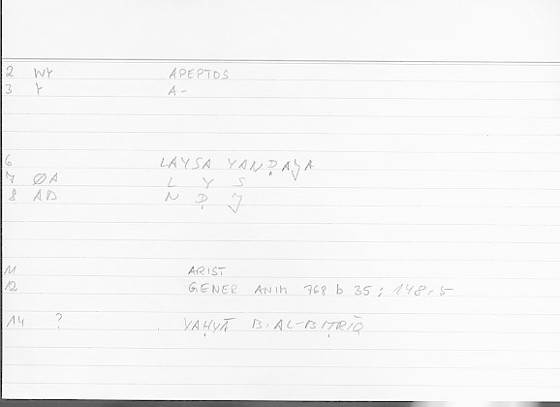 2 WY APEPTOS
3 Y A-
6 LAYSA YANḌAǦA
7 ØA L Y S
8 AB N Ḍ Ǧ
11 ARIST
12 GENER ANIM 768 b 35; 148,5
14 ? YAḤYĀ B. AL-BIṬRĪQ